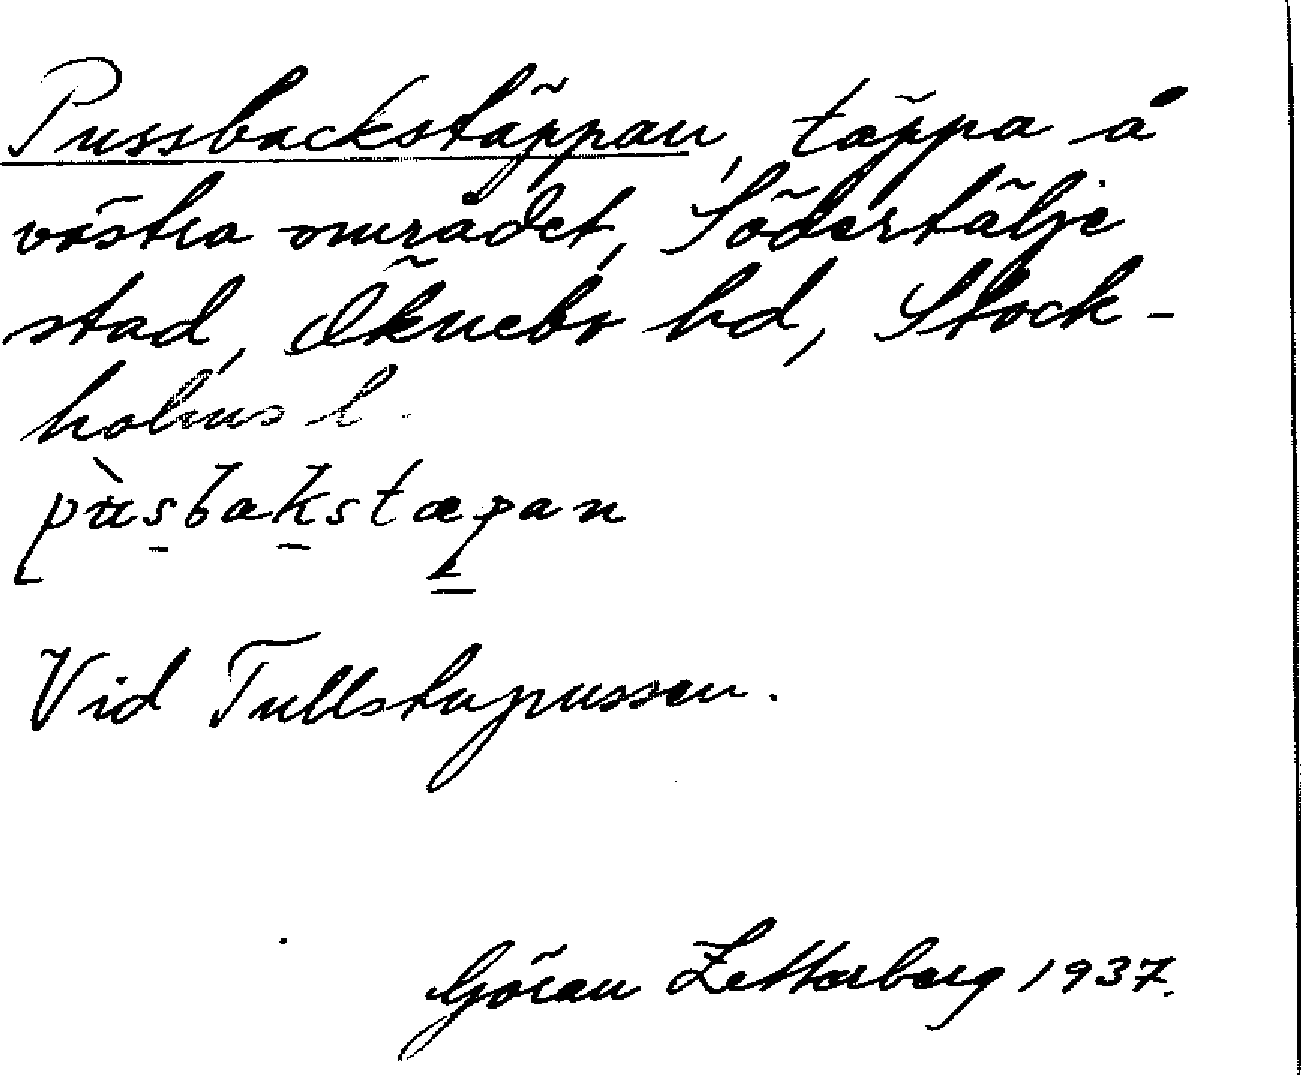 Pussbackstäppan, täppa å
västra området, Södertälje
stad, Öknebo hd, Stock-
holms l.
pùsbakstæpan
Vid Tullstupussen.
Göran Zetterberg 1937.